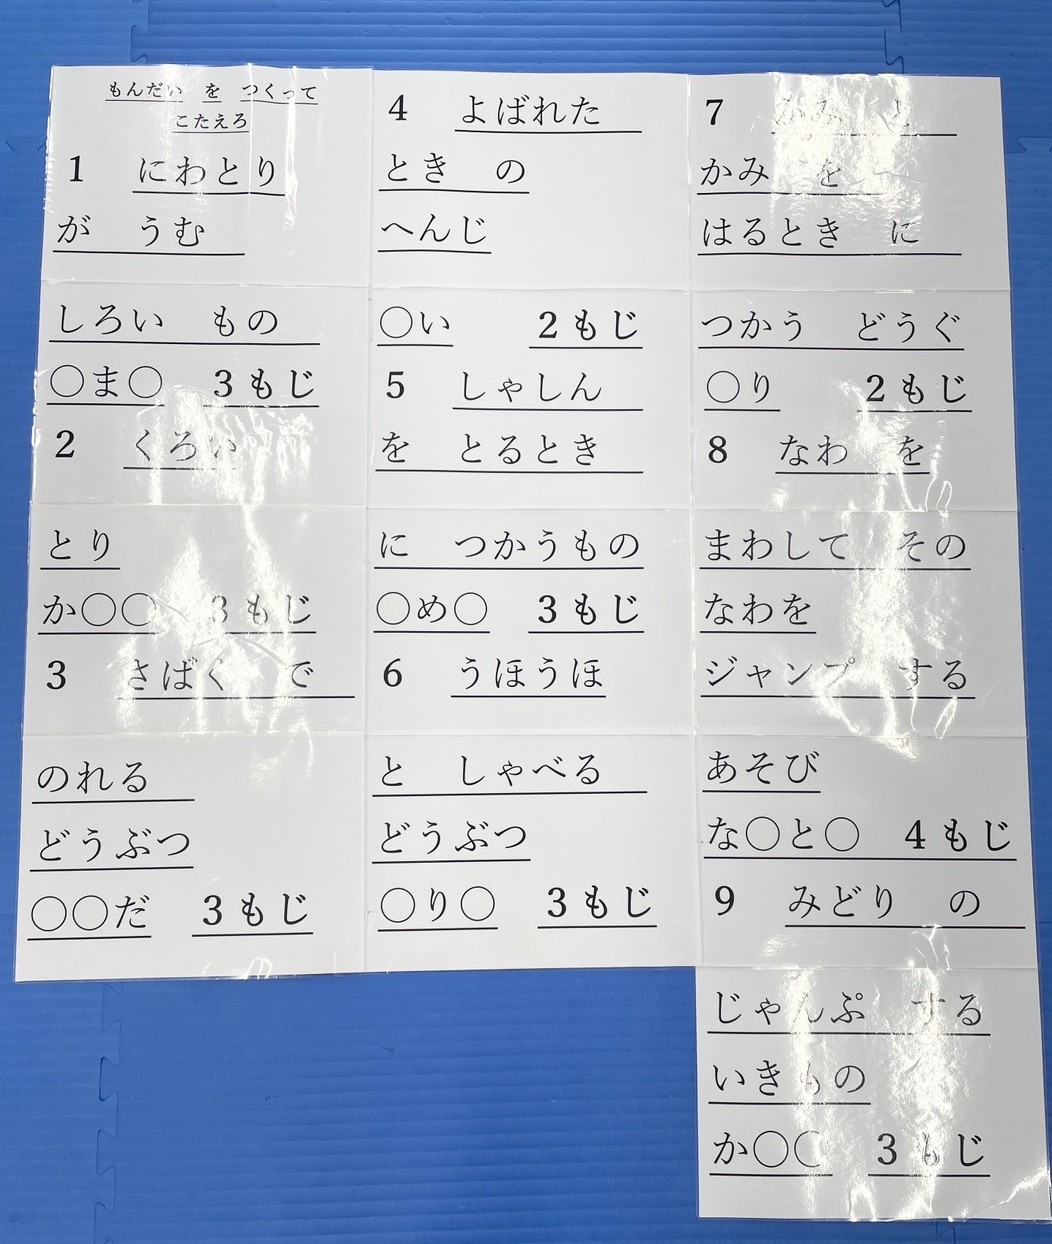 もんだい を つくって
こたえろ
1 にわとり
が うむ
しろい もの
○ま○ 3もじ
2 くろい
とり
か○○ 3もじ
3 さばく で
のれる
どうぶつ
○○だ 3もじ
4 よばれた
とき の
へんじ
○い 2もじ
5 しゃしん
を とるとき
に つかうもの
○め○ 3もじ
6 うほうほ
と しゃべる
どうぶつ
○り○ 3もじ
7 かみ と
かみ を
はるとき に
つかう どうぐ
○り 2もじ
8 なわ を
まわして その
なわを
ジャンプ する
あそび
な○と○ 4もじ
9 みどり の
じゃんぷ する
いきもの
か○○ 3もじ